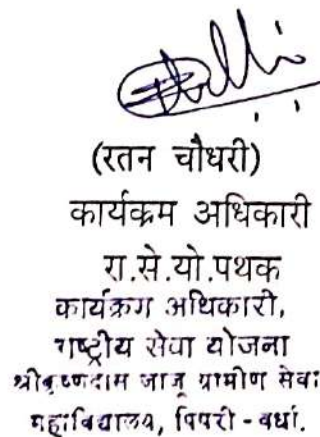 (रतन चौधरी)
कार्यक्रम अधिकारी
रा.से.यो.पथक
कार्यक्रम अधिकारी,
राष्ट्रीय सेवा योजना
श्रीकृष्णदास जाजू ग्रामीण सेवा
महाविद्यालय, पिपरी - वर्धा.